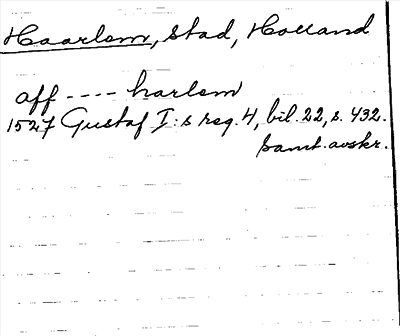 Haarlem, stad, Holland
aff ---- harlem
1527 Gustaf I:s reg. 4, bil. 22, s. 432.
Samt. avskr.